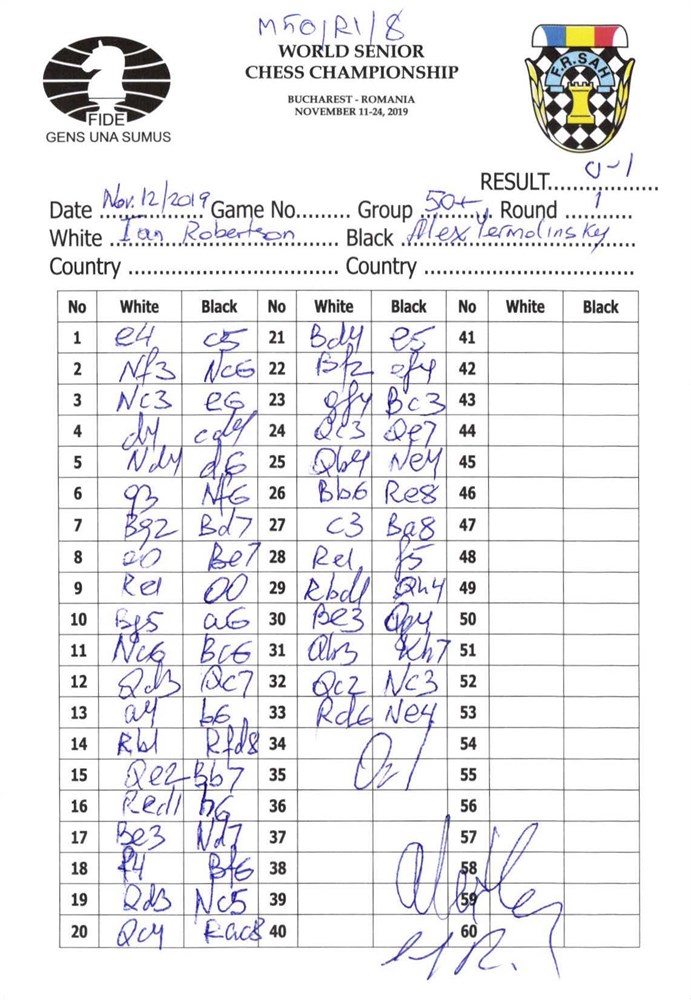 M50/R1/8
WORLD SENIOR
CHESS CHAMPIONSHIP
BUCHAREST - ROMANIA
NOVEMBER 11-24, 2019
FIDE
GENS UNA SUMUS
F.R.SAH
RESULT 0-1
Date Nov. 12/2019 Game No. Group 50+ Round 1
White Ian Robertson Black Alex Yermolinsky
Country Country
No White Black No White Black No White Black
1 e4 c5 21 Bd4 e5 41
2 Nf3 Nc6 22 Bf2 ef4 42
3 Nc3 e6 23 gf4 Bc3 43
4 d4 cd4 24 Qc3 Qe7 44
5 Nd4 d6 25 Qb4 Ne4 45
6 g3 Nf6 26 Bb6 Re8 46
7 Bg2 Bd7 27 c3 Ba8 47
8 00 Be7 28 Re1 f5 48
9 Re1 00 29 Rbd1 Qh4 49
10 Bg5 a6 30 Be3 50
11 Nc6 Bc6 31 Qb3 Kh7 51
12 Qd3 Qc7 32 Qc2 Nc3 52
13 a4 b6 33 Rd6 Ne4 53
14 Rb1 Rfd8 34 0-1 54
15 Qe2 Bb7 35 55
16 Red1 h6 36 56
17 Be3 Nd7 37 57
18 f4 Bf6 38 58
19 Qd3 Nc5 39 59
20 Qc4 Rac8 40 60